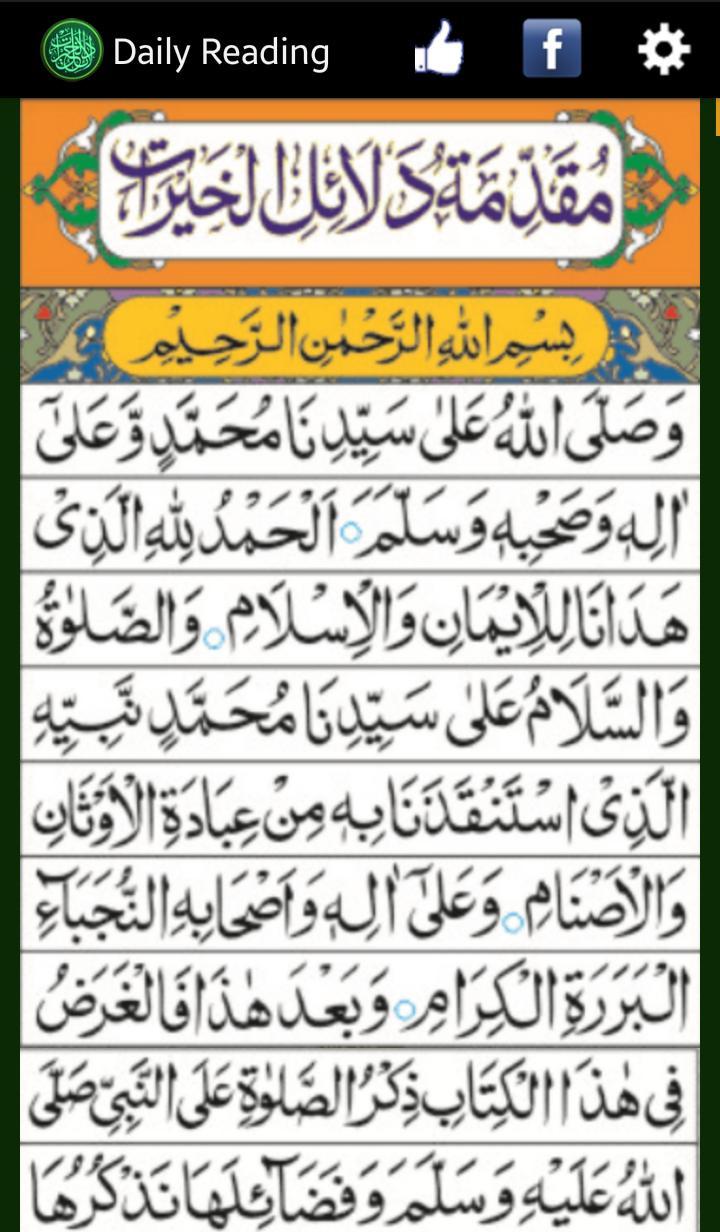 Daily Reading
مُقَدِّمَةُ دَلَائِلِ الْخَيْرَاتِ
بِسْمِ اللهِ الرَّحْمٰنِ الرَّحِيْمِ
وَصَلَّى اللهُ عَلٰى سَيِّدِنَا مُحَمَّدٍ وَّعَلٰٓى
اٰلِهٖ وَصَحْبِهٖ وَسَلَّمَ ○ اَلْحَمْدُ لِلّٰهِ الَّذِىْ
هَدَانَا لِلْاِيْمَانِ وَالْاِسْلَامِ ○ وَالصَّلٰوةُ
وَالسَّلَامُ عَلٰى سَيِّدِنَا مُحَمَّدٍ نَّبِيِّهِ
الَّذِى اسْتَنْقَذَنَا بِهٖ مِنْ عِبَادَةِ الْاَوْثَانِ
وَالْاَصْنَامِ ○ وَعَلٰٓى اٰلِهٖ وَاَصْحَابِهِ النُّجَبَآءِ
الْبَرَرَةِ الْكِرَامِ ○ وَبَعْدَ هٰذَا فَالْغَرَضُ
فِىْ هٰذَا الْكِتَابِ ذِكْرُ الصَّلٰوةِ عَلَى النَّبِيِّ صَلَّى
اللهُ عَلَيْهِ وَسَلَّمَ وَفَضَآئِلَهَا نَذْكُرُهَا